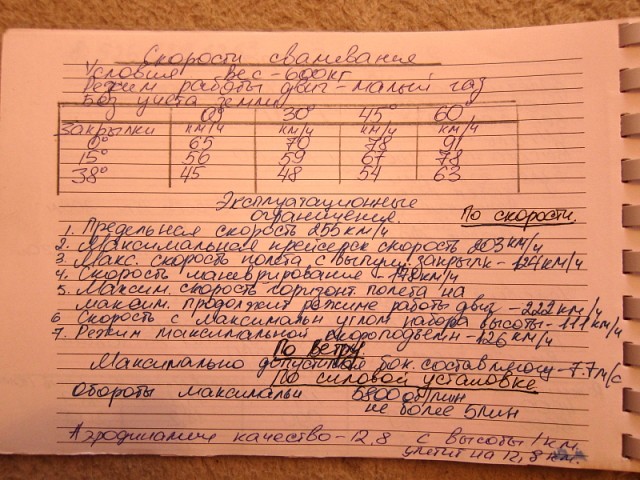 Скорости сваливания
Условия вес-600кг
Режим работы двиг-малый газ
Без учета земли
0° 30° 45° 60°
закрылки км/ч км/ч км/ч км/ч
0° 65 70 78 91
15° 56 59 67 78
38° 45 48 54 63
Эксплуатационные
ограничения. По скорости.
1. Предельная скорость 255 км/ч
2. Максимальная крейсерск скорость 203 км/ч
3. Макс. скорость полета с выпущ. закрылк-124км/ч
4. Скорость маневрирования -148км/ч
5. Максим. скорость горизонт. полета на
максим. продолжит режиме работы двиг -222 км/ч
6 Скорость с максимальн углом набора высоты-111 км/ч
7. Режим максимальной скороподъемн-126 км/ч
По ветру
Максимально допустимая бок. составляющ-7.7м/с
По силовой установке
Обороты максимальн 5800 об/мин
не более 5мин
Аэродинамич качество-12,8 с высоты 1км.
улетит на 12,8 км.